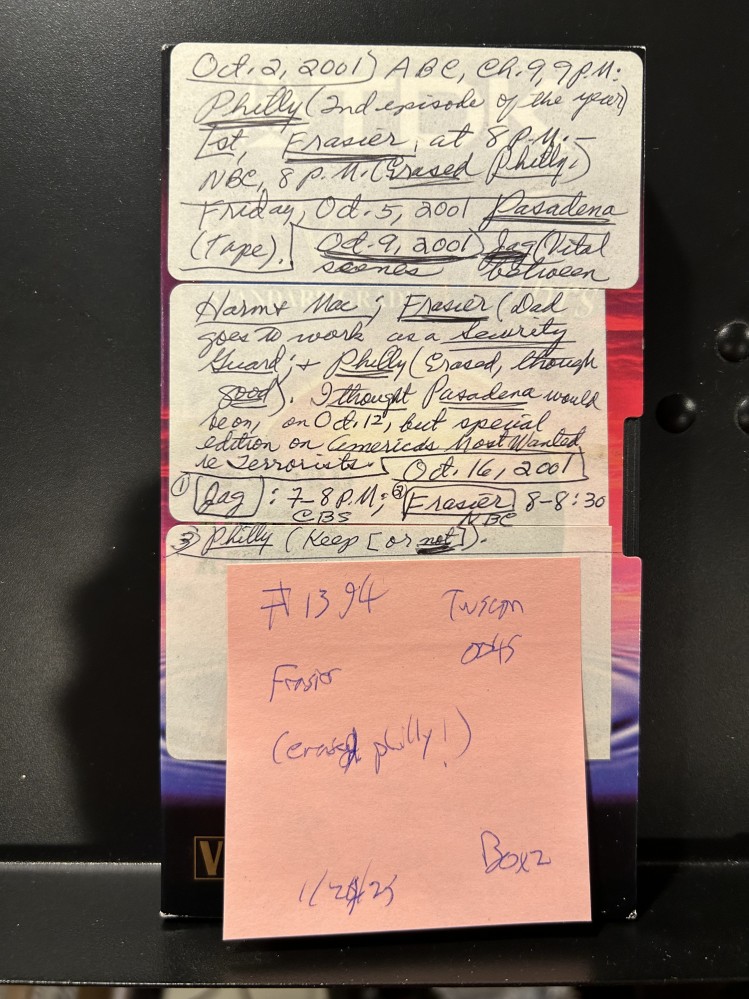 Oct. 2, 2001) ABC, Ch. 9, 9 P.M:
Philly (2nd episode of the year)
1st, Frasier, at 8 P.M. –
NBC, 8 P.M. (Erased Philly.)
Friday, Oct. 5, 2001 Pasadena
(Tape). Oct. 9, 2001) Jag (Vital
scenes between
Harm & Mac; Frasier (Dad
goes to work as a Security
Guard; & Philly (Erased, though
good). I thought Pasadena would
be on, on Oct. 12, but special
edition on Americas Most Wanted
re Terrorists. Oct. 16, 2001
① Jag: 7-8 P.M; ② Frasier 8-8:30
CBS NBC
3) Philly (Keep [or not]).
#1394 Tuscon
0045
Frasier
(erased philly!)
Box 2
V